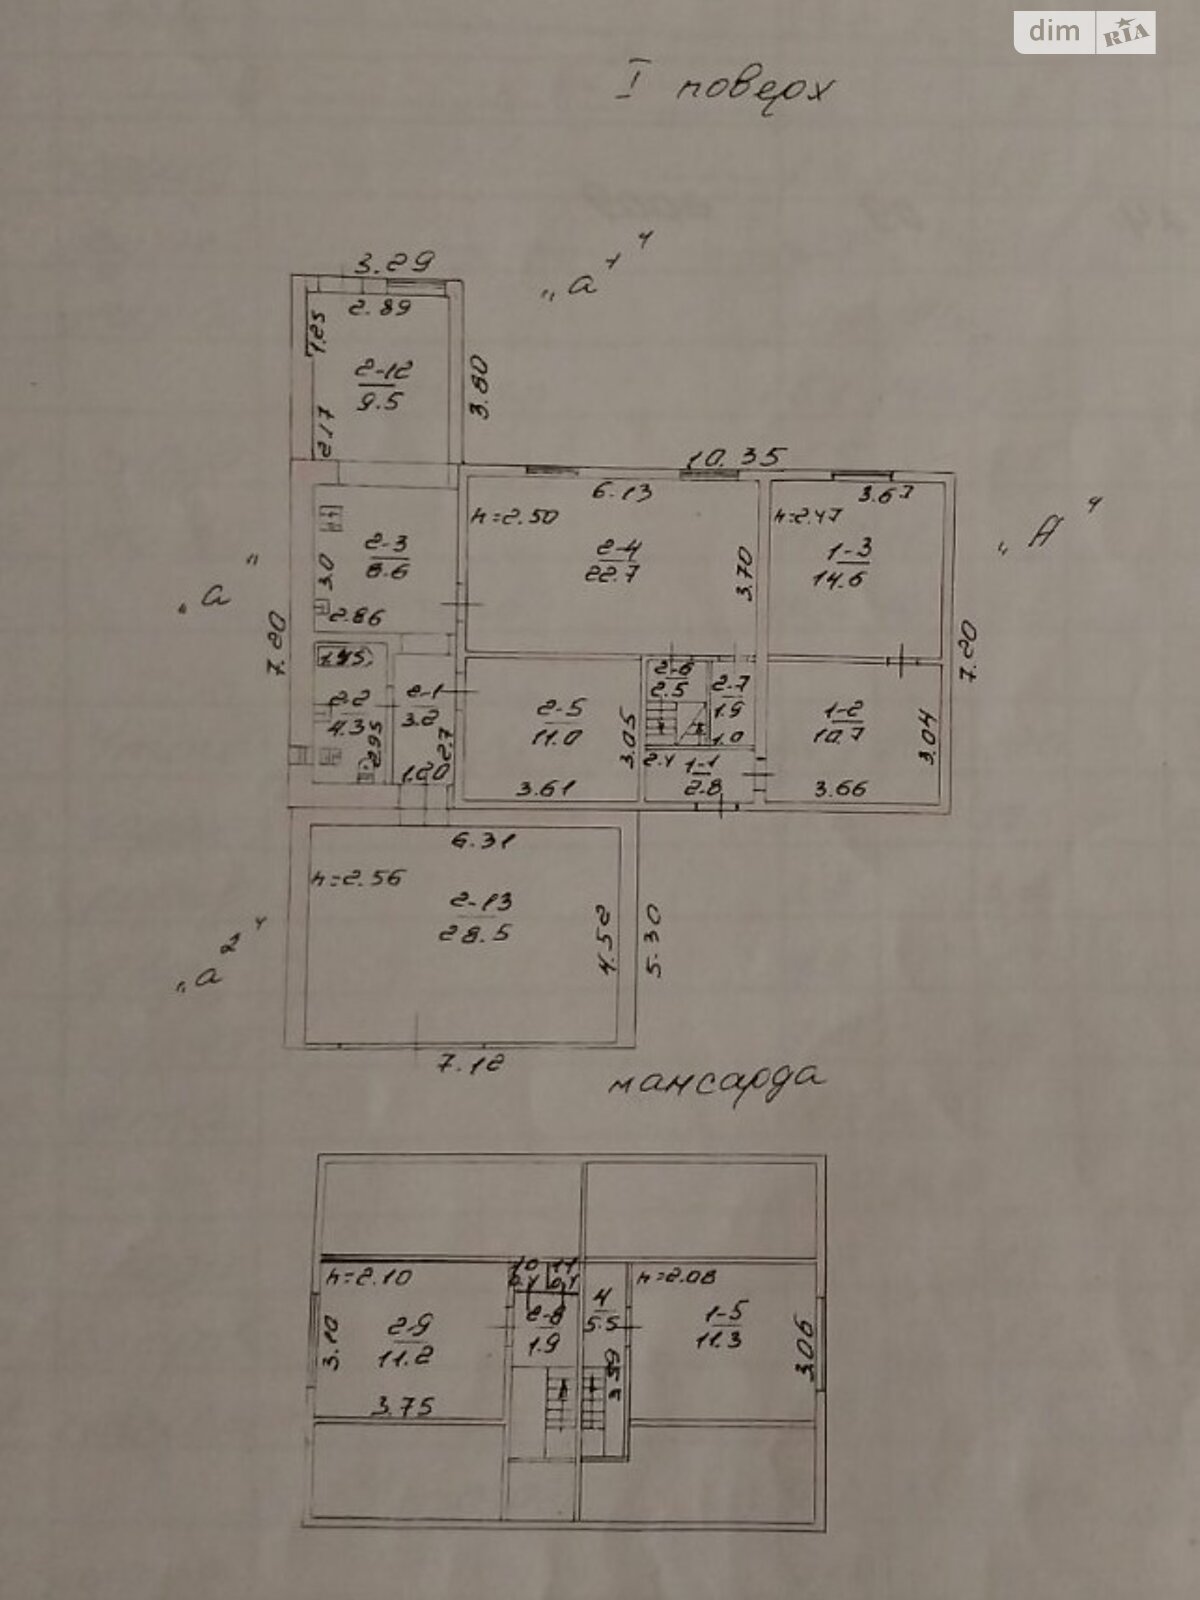 dim RIA
I поверх
3.29
„а¹"
2.89
1.25
2-12
9.5
3.80
2.17
10.35
6.13
3.67
h=2.50
h=2.47
„А"
2-3
8.6
2-4
22.7
1-3
14.6
3.70
3.0
„а"
2.86
7.20
7.20
1.45
2-6
2.5
2-7
1.9
2-2
4.3
2-1
3.2
2-5
11.0
1-2
10.7
3.05
3.04
2.95
2.7
1.0
2.4
1-1
2.8
1.20
3.61
3.66
6.31
h=2.56
2-13
28.5
4.52
5.30
„а²"
7.12
мансарда
10
0.4
11
0.1
h=2.10
h=2.08
4
5.5
1-5
11.3
2-8
1.9
2-9
11.2
3.10
3.06
3.99
3.75